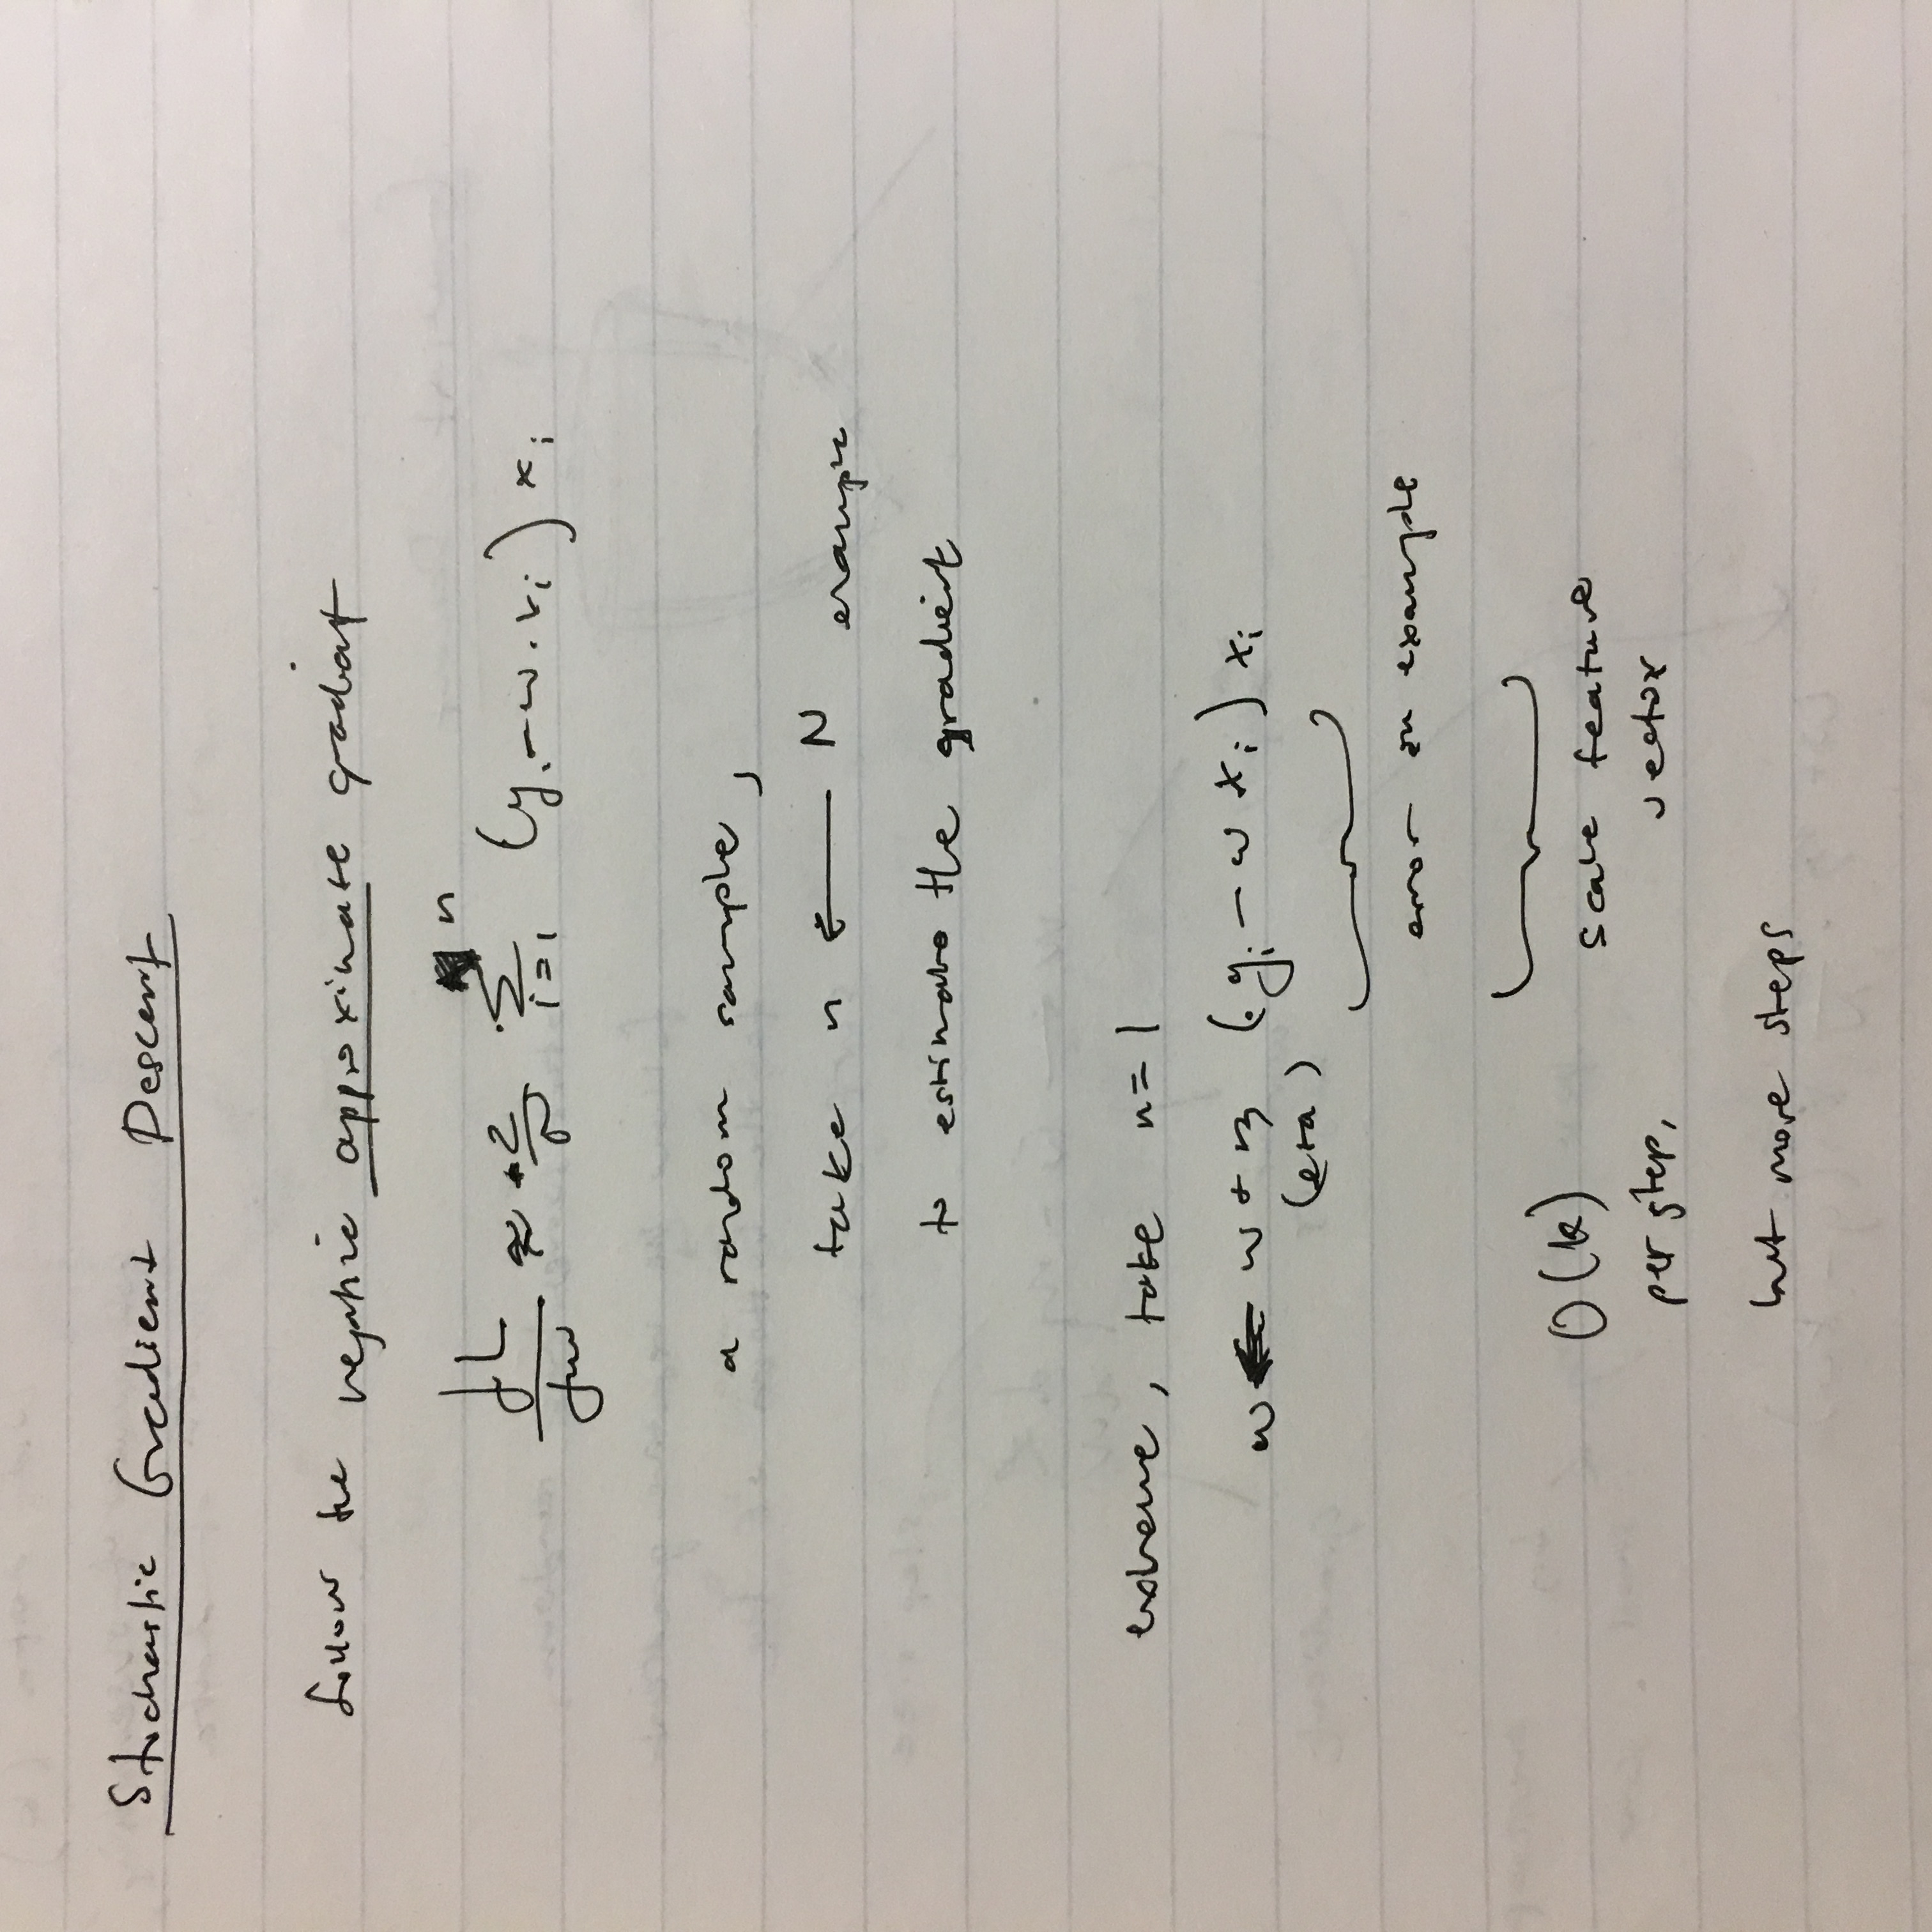 Stochastic Gradient Descent
follow the negative approximate gradient
dL/dw ≈ -2/n Σ_{i=1}^{n} (y_i - w·x_i) x_i
a random sample,
take n ← N example
to estimate the gradient
extreme, take n=1
w ← w + η (y_i - w x_i) x_i
(eta)
error on example
O(k)
scale feature
per step,
vector
but more steps